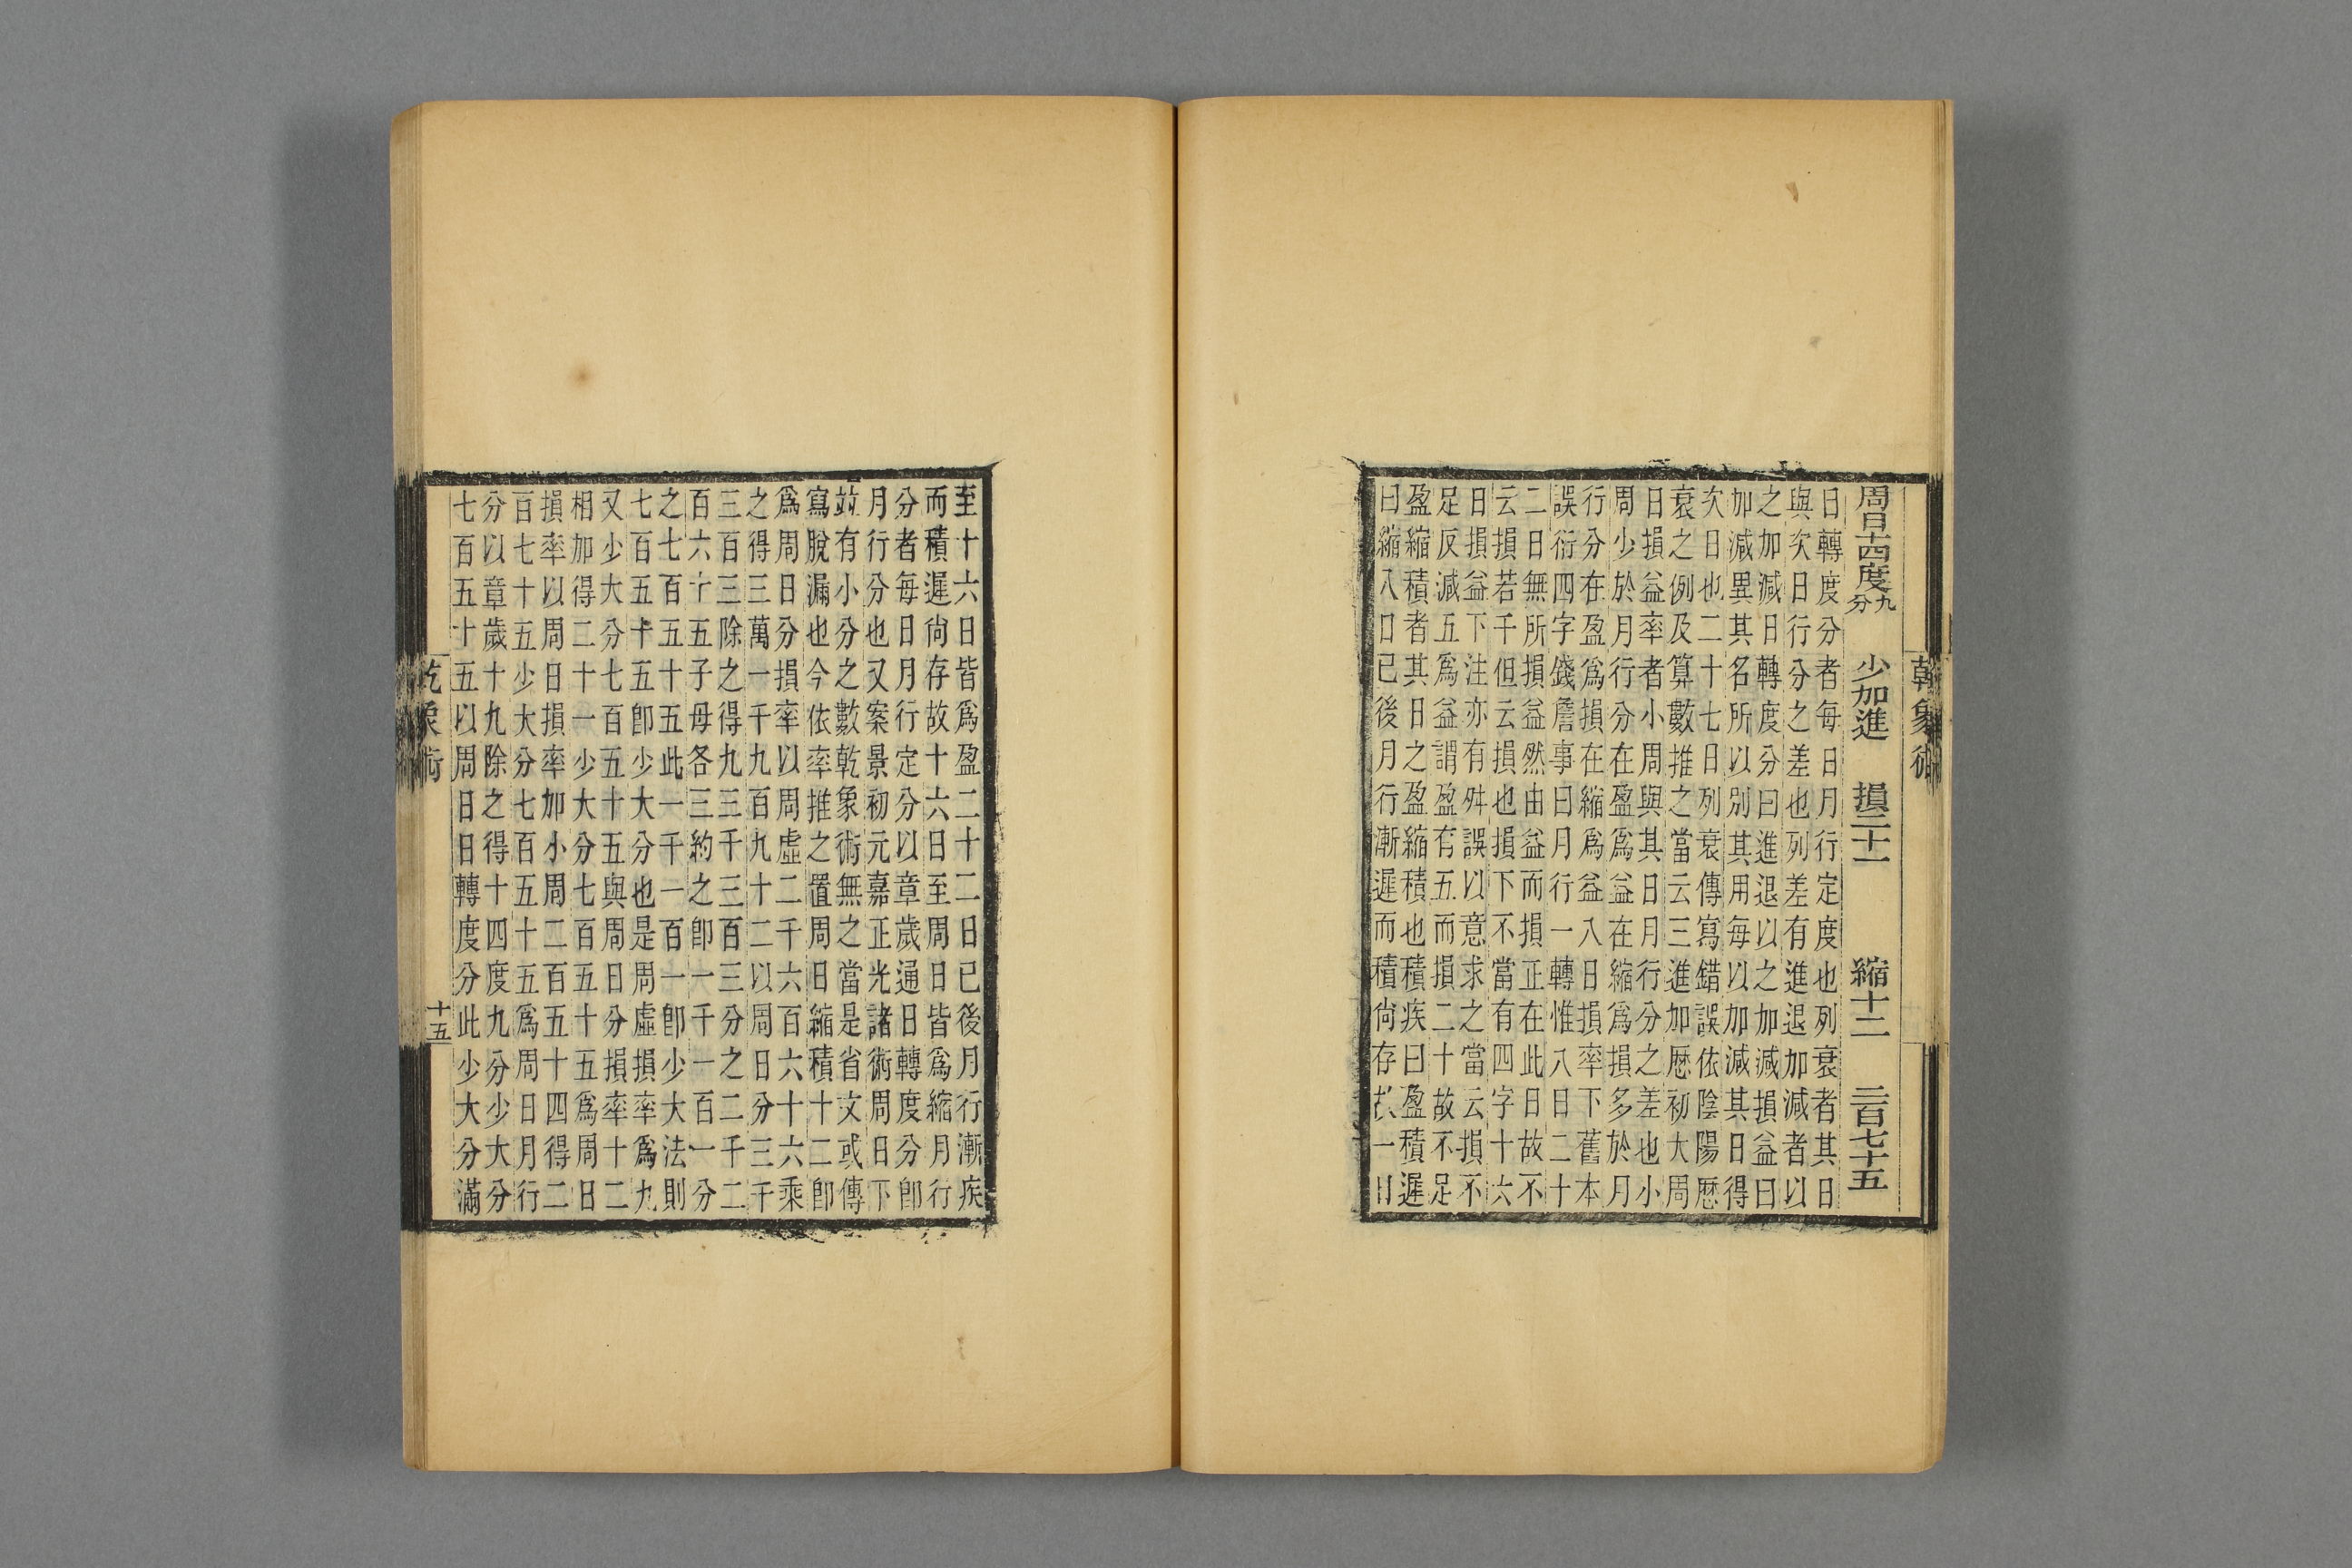 乾象術
周日十四度九分 少加進 損二十一 縮十二 二百七十五
日轉度分者每日月行定度也列衰者其日
與次日行分之差也列差有進退加減者以
之加減日轉度分曰進退以之加減損益曰
加減異其名所以別其用每以加減其日得
次日也二十七日列衰傳寫錯誤依陰陽厯
衰之例及算數推之當云三進加厯初大周
日損益率者小周與其日月行分之差也小
周少於月行分在盈爲益在縮爲損多於月
行分在盈爲損在縮爲益八日損率下舊本
誤衍四字錢詹事曰月行一轉惟八日二十
二日無所損益然由益而損正在此日故不
云損若干但云損也損下不當有四字十六
日損益下注亦有舛誤以意求之當云損不
足反減五爲益謂盈有五而損二十故不足
盈縮積者其日之盈縮積也積疾曰盈積遲
曰縮八日已後月行漸遲而積尚存故一日
至十六日皆爲盈二十二日已後月行漸疾
而積遲尚存故十六日至周日皆爲縮月行
分者每日月行定分以章歲通日轉度分卽
月行分也又案景初元嘉正光諸術周日下
竝有小分之數乾象術無之當是省文或傳
寫脫漏也今依率推之置周日縮積十二卽
爲周日分損率以周虛二千六百六十六乘
之得三萬一千九百九十二以周日分三千
三百三除之得九三千三百三分之二千二
百六十五子母各三約之卽一千一百一分
之七百五十五此一千一百一卽少大法則
七百五十五卽少大分也是周虛損率爲九
又少大分七百五十五與周日分損率十二
相加得二十一少大分七百五十五爲周日
損率以周日損率加小周二百五十四得二
百七十五少大分七百五十五爲周日月行
分以章歲十九除之得十四度九分少大分
七百五十五以周日日轉度分此少大分滿
乾象術 十五